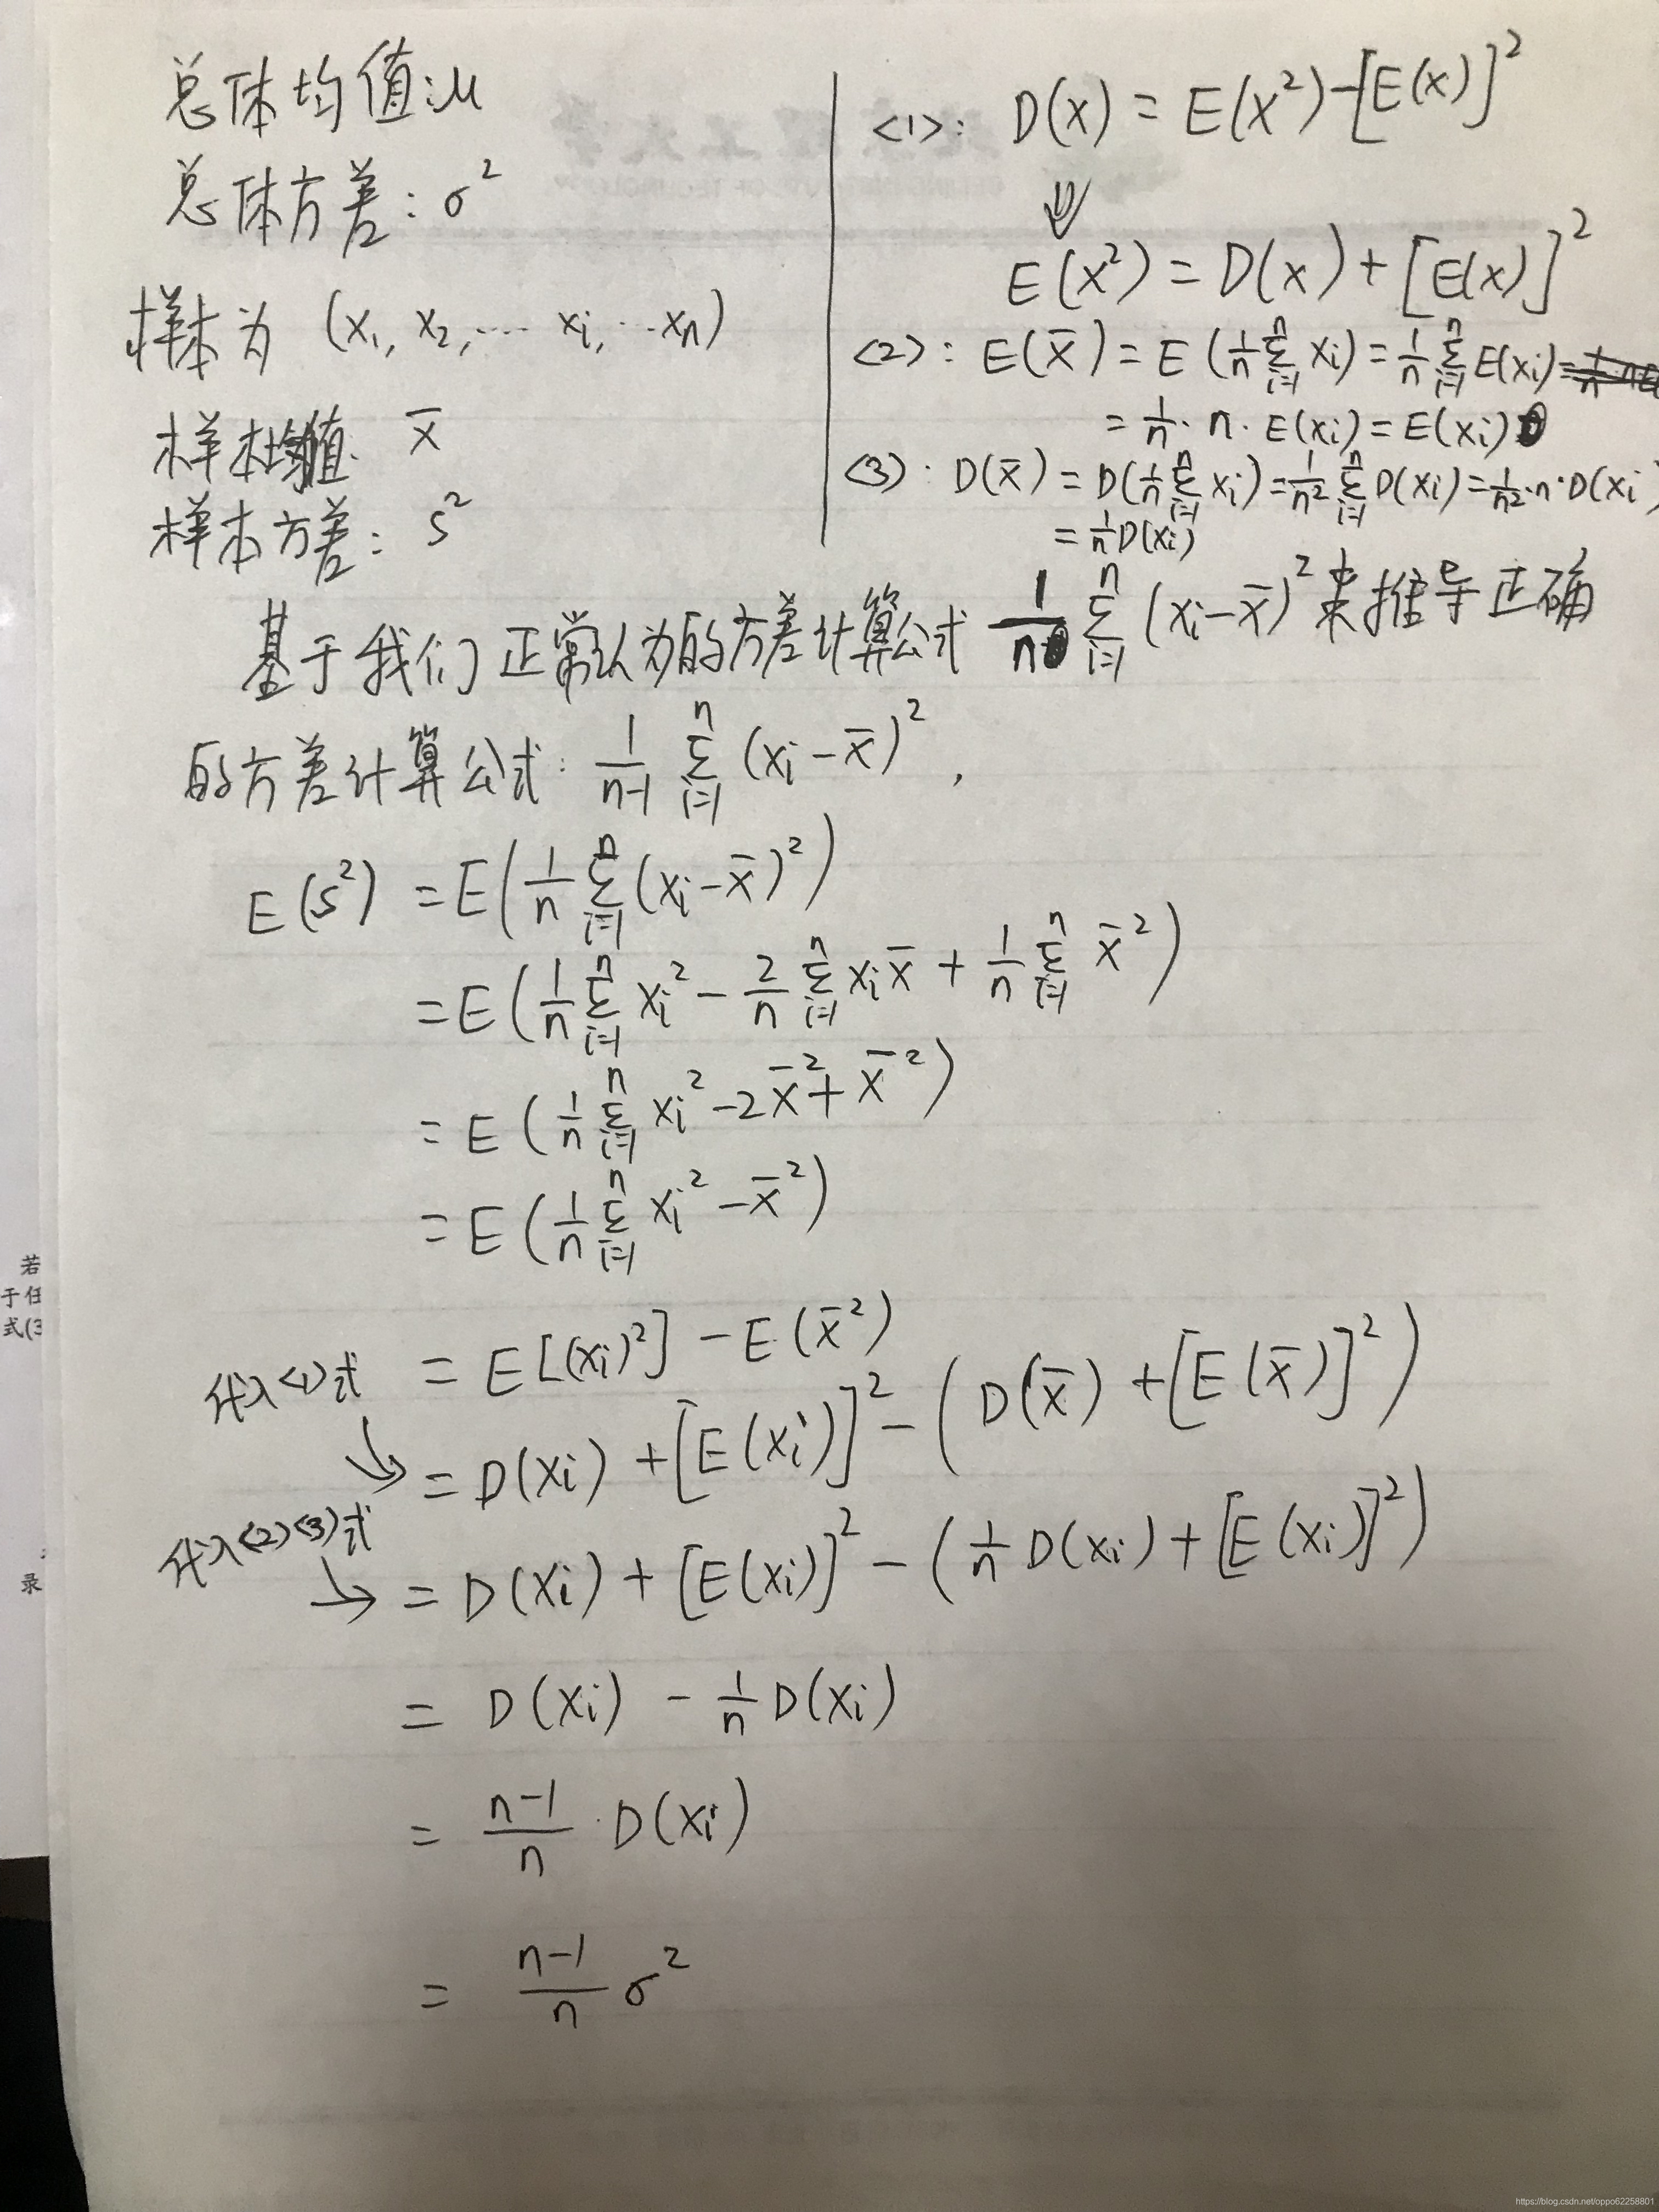 总体均值:μ
总体方差: σ²
样本为 (x₁, x₂, ⋯ xᵢ, ⋯xₙ)
样本均值: x̄
样本方差: s²
<1>: D(x) = E(x²) - [E(x)]²
⇓
E(x²) = D(x) + [E(x)]²
<2>: E(x̄) = E(1/n Σᵢ₌₁ⁿ xᵢ) = 1/n Σᵢ₌₁ⁿ E(xᵢ)
= 1/n · n · E(xᵢ) = E(xᵢ)
<3>: D(x̄) = D(1/n Σᵢ₌₁ⁿ xᵢ) = 1/n² Σᵢ₌₁ⁿ D(xᵢ) = 1/n² · n · D(xᵢ)
= 1/n D(xᵢ)
基于我们正常认为的方差计算公式 1/n Σᵢ₌₁ⁿ (xᵢ - x̄)² 来推导正确
的方差计算公式: 1/(n-1) Σᵢ₌₁ⁿ (xᵢ - x̄)²,
E(s²) = E(1/n Σᵢ₌₁ⁿ (xᵢ - x̄)²)
= E(1/n Σᵢ₌₁ⁿ xᵢ² - 2/n Σᵢ₌₁ⁿ xᵢx̄ + 1/n Σᵢ₌₁ⁿ x̄²)
= E(1/n Σᵢ₌₁ⁿ xᵢ² - 2x̄² + x̄²)
= E(1/n Σᵢ₌₁ⁿ xᵢ² - x̄²)
= E[(xᵢ)²] - E(x̄²)
代入<1>式
= D(xᵢ) + [E(xᵢ)]² - (D(x̄) + [E(x̄)]²)
代入<2><3>式
= D(xᵢ) + [E(xᵢ)]² - (1/n D(xᵢ) + [E(xᵢ)]²)
= D(xᵢ) - 1/n D(xᵢ)
= (n-1)/n · D(xᵢ)
= (n-1)/n σ²
若
于任
式(3
录
https://blog.csdn.net/oppo62258801